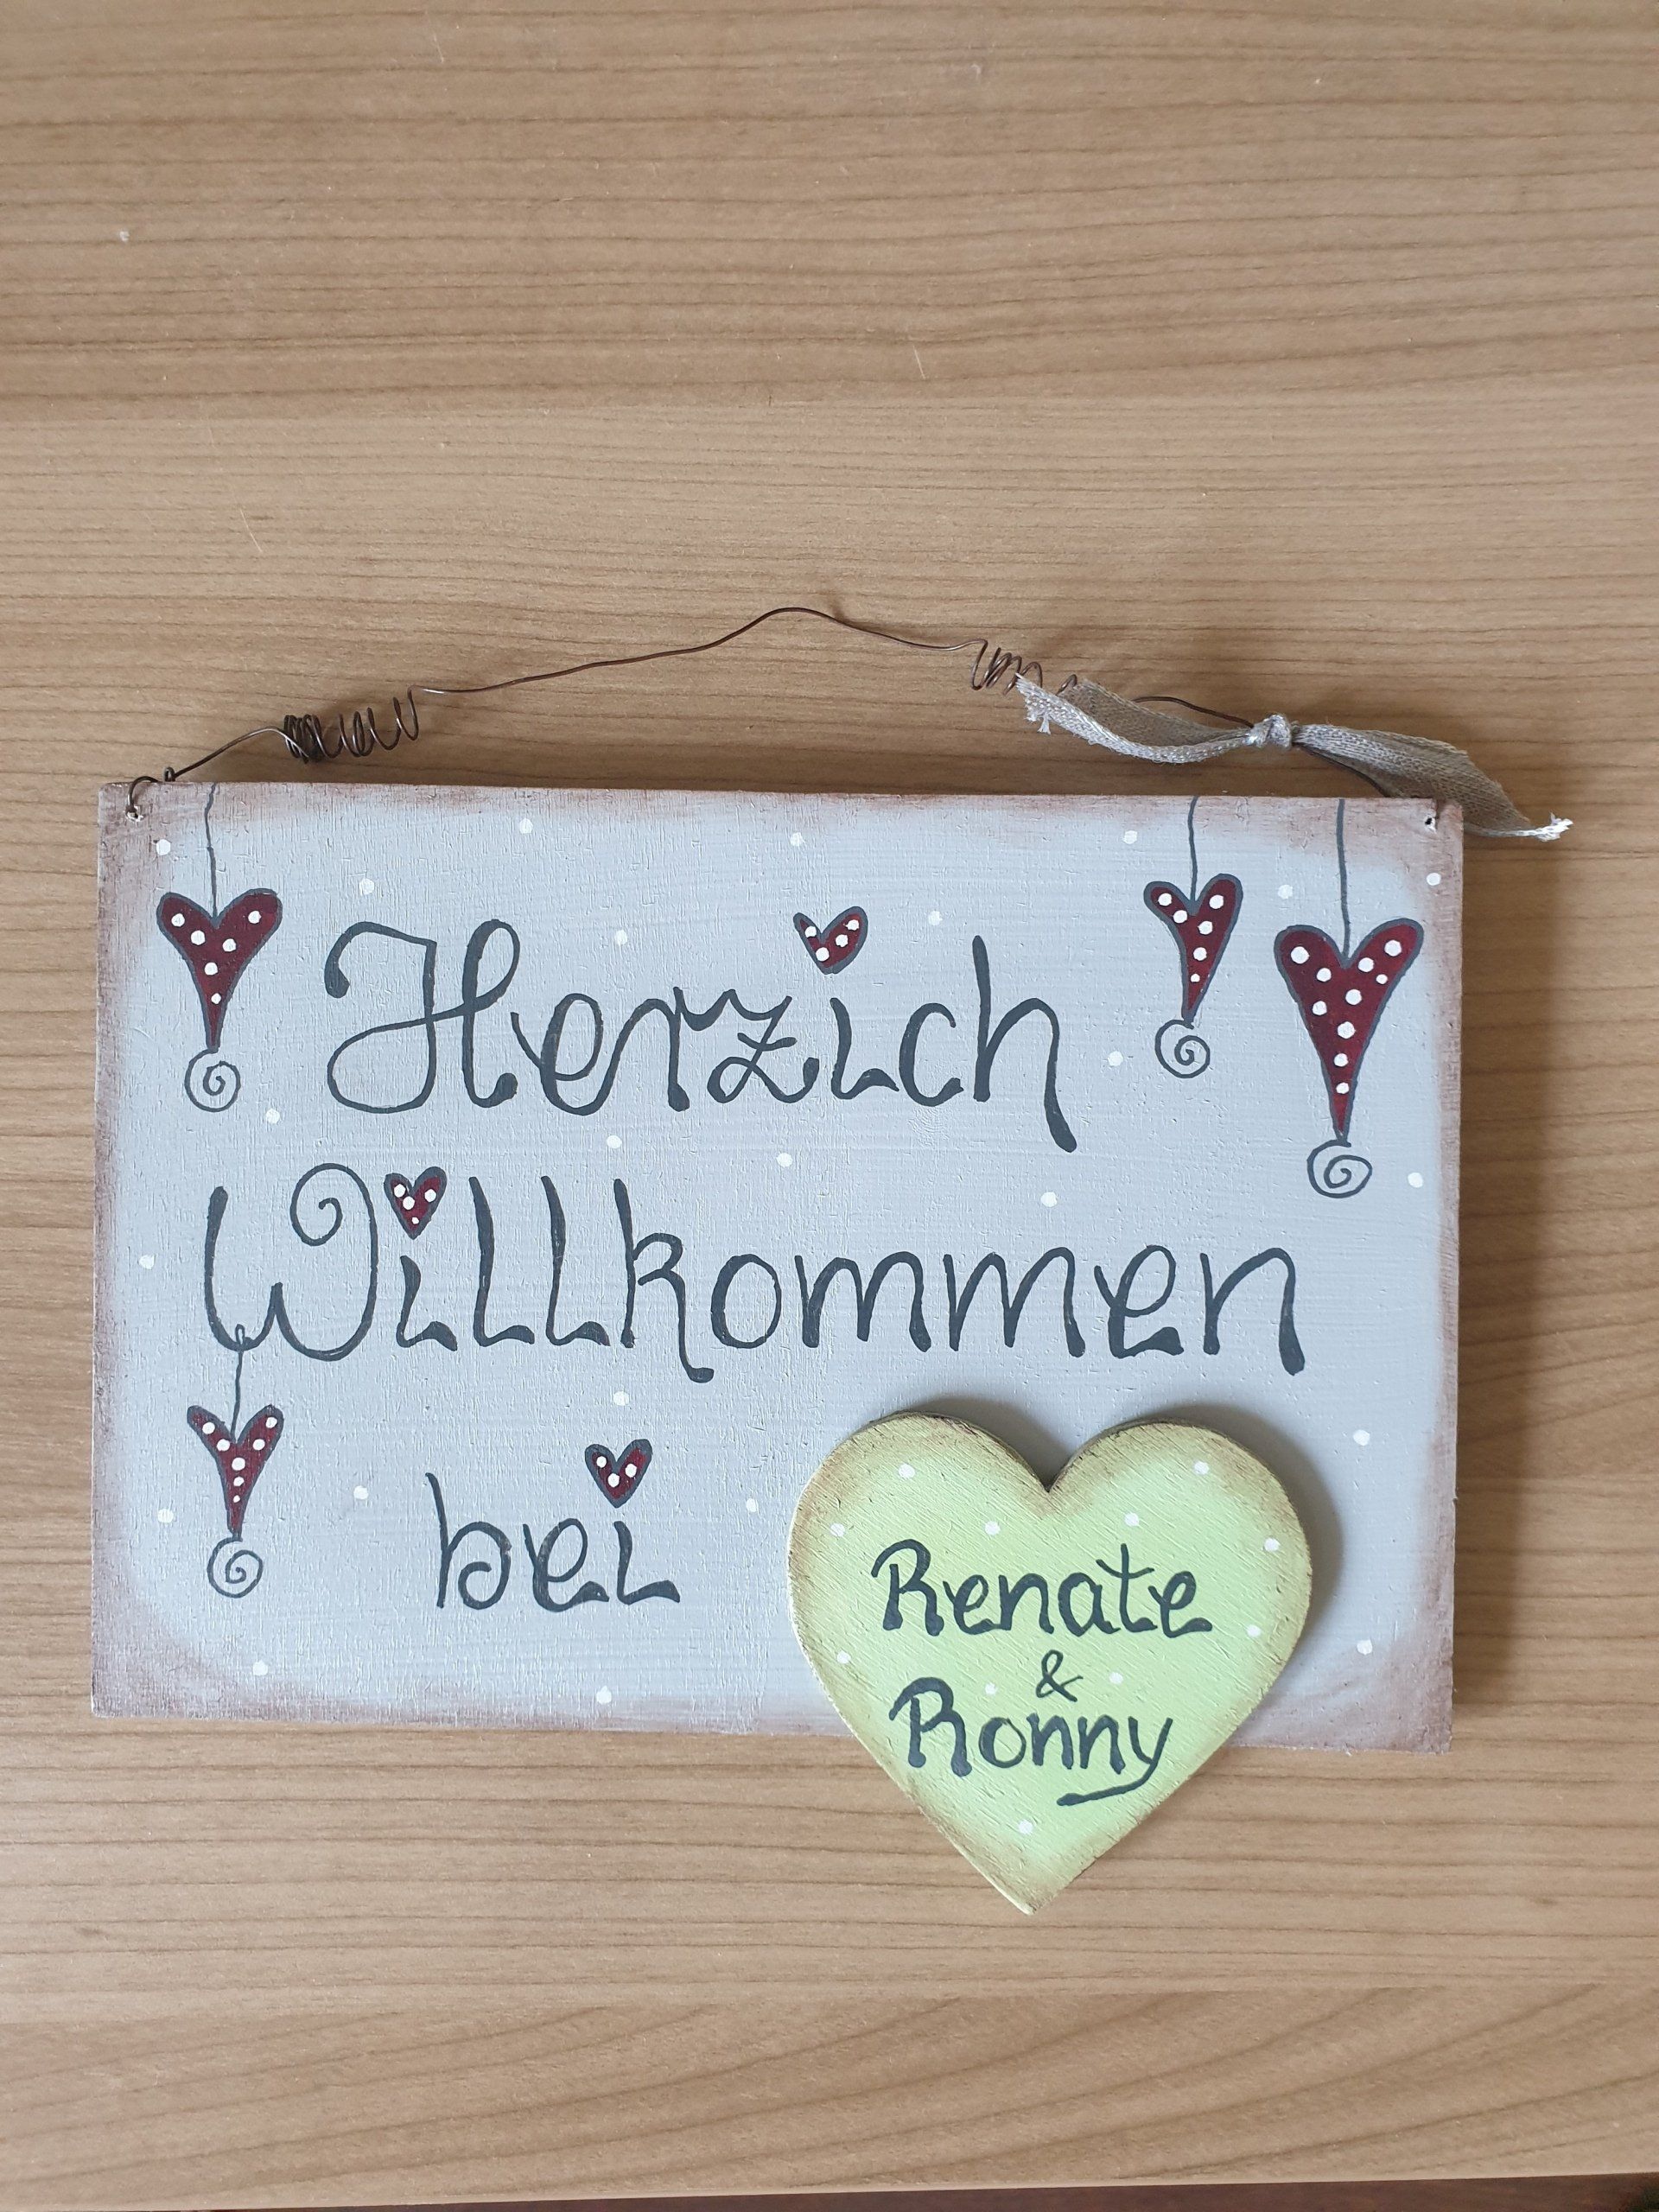 Herzich
Willkommen
bei
Renate
&
Ronny